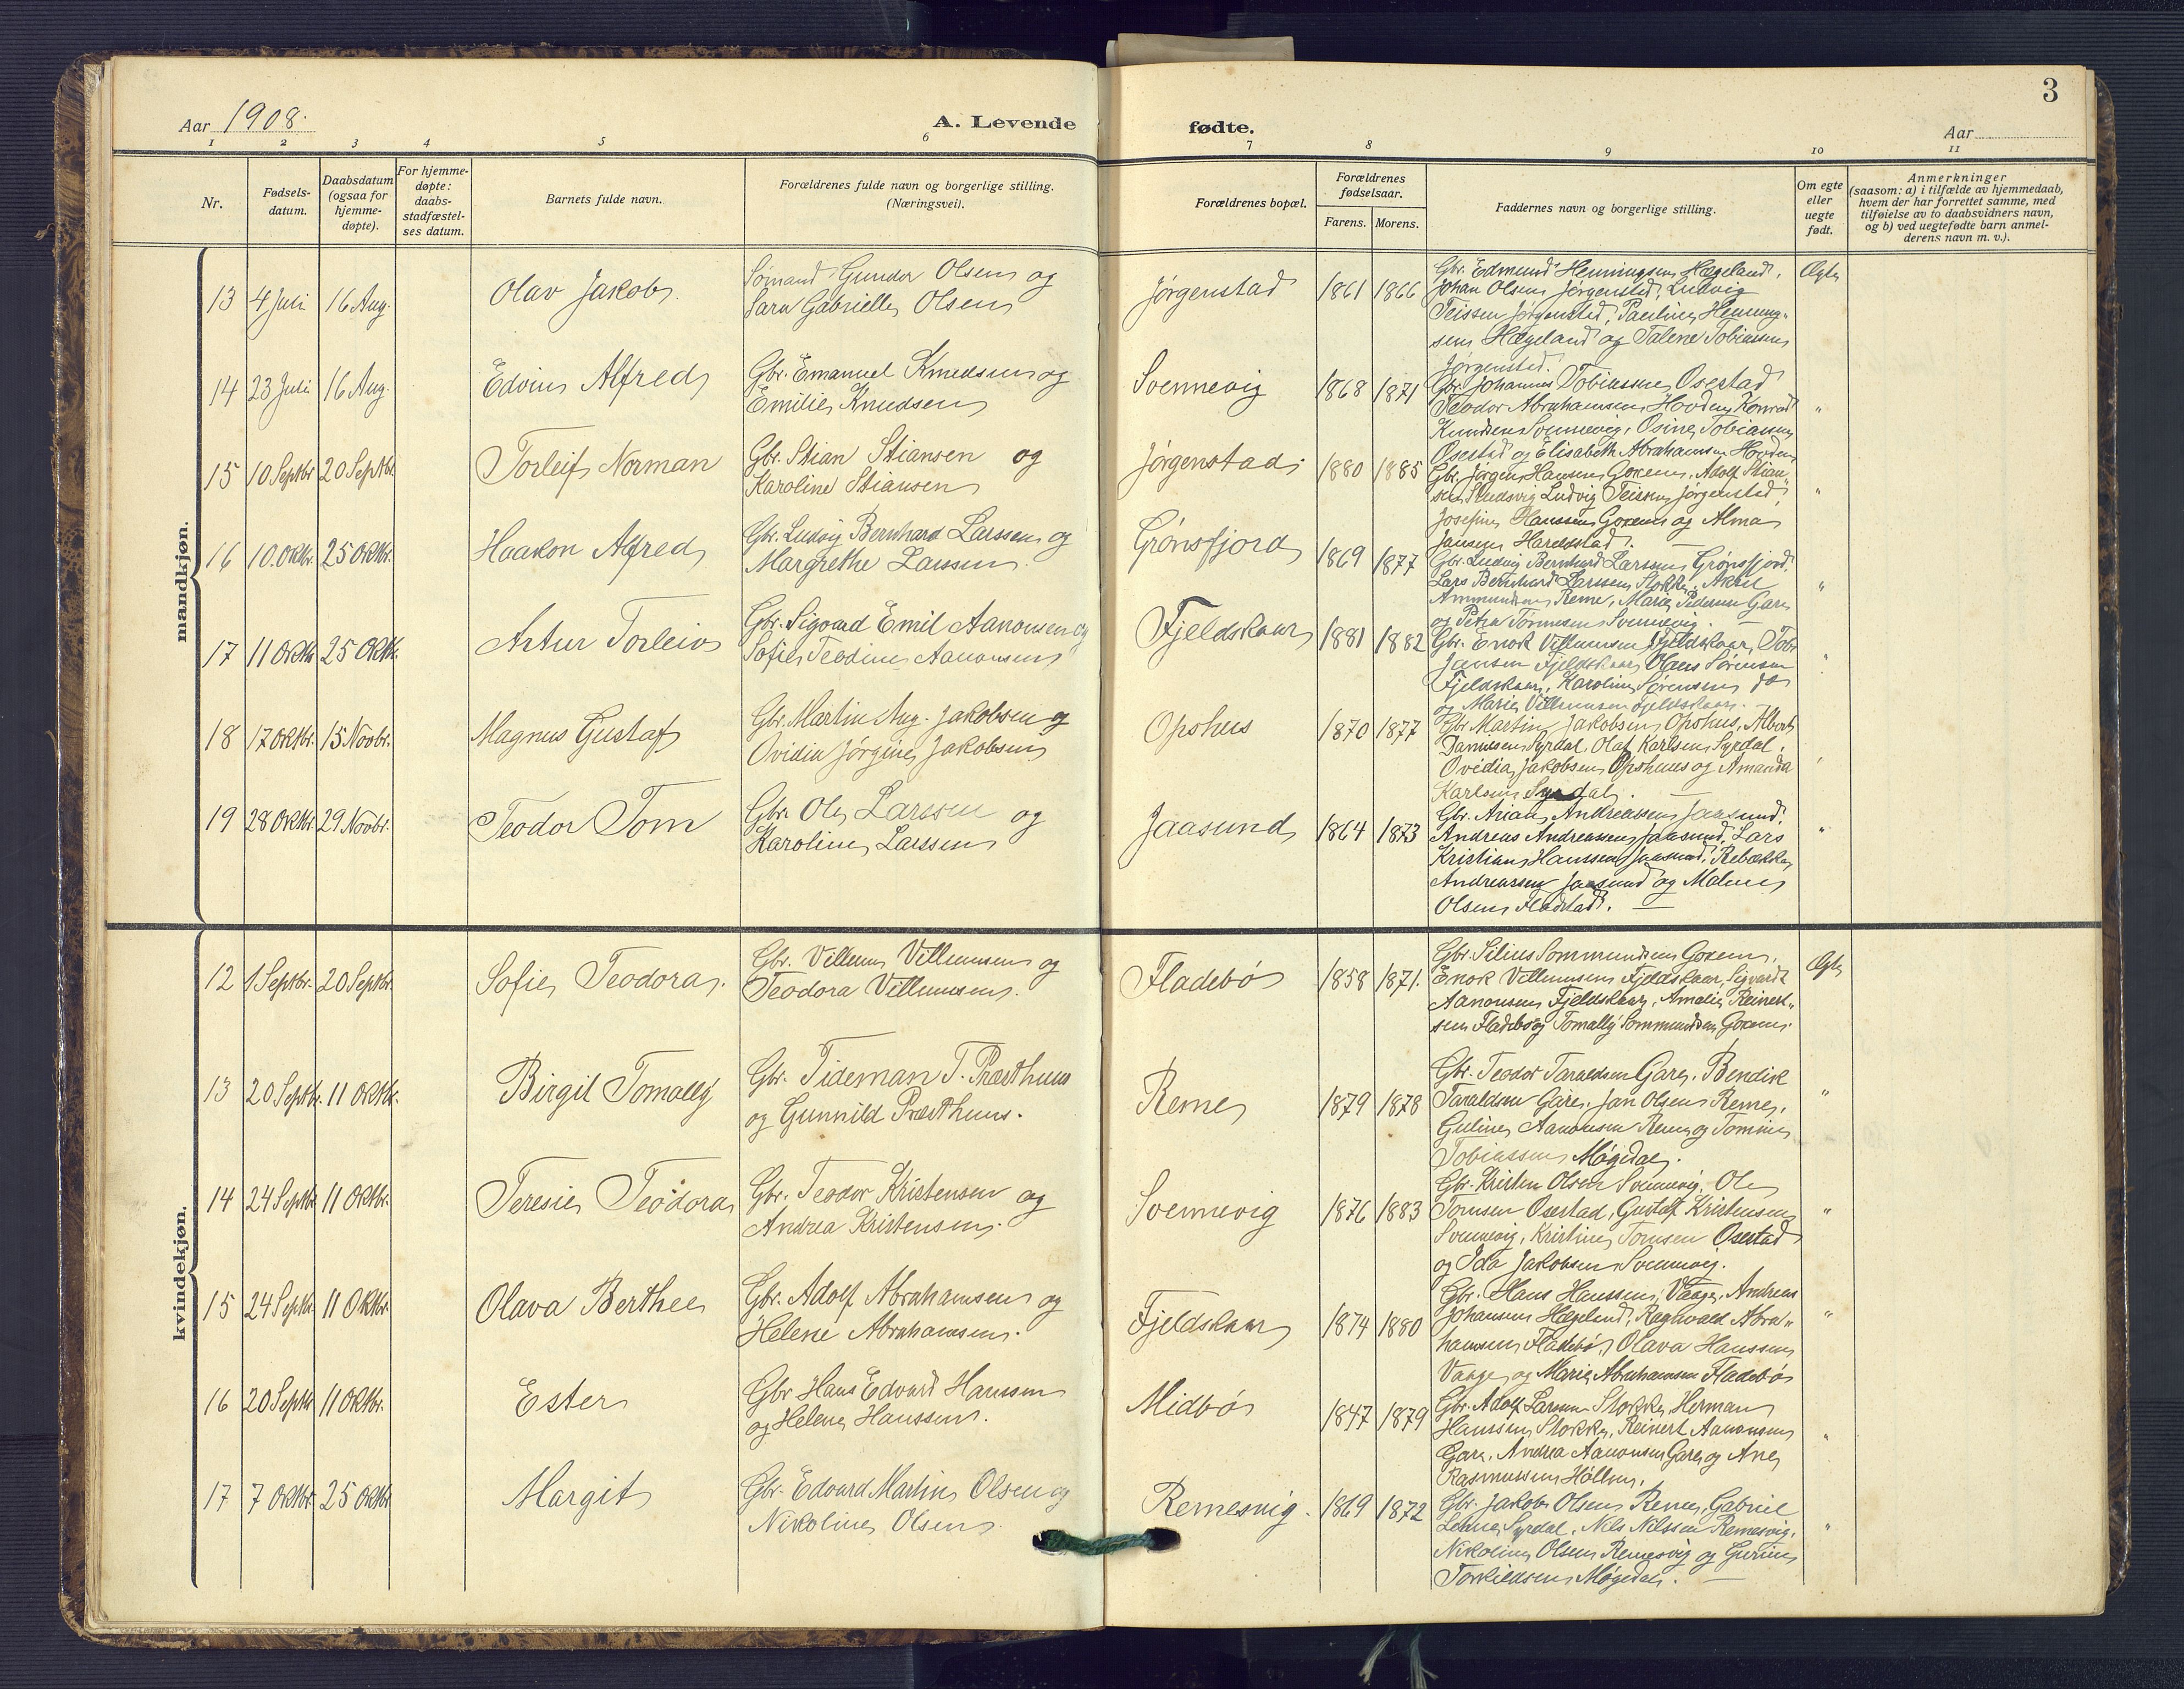 3
Aar 1908.
A. Levende fødte.
Aar
1 2 3 4 5 6 7 8 9 10 11
Nr.
Fødsels-
datum.
Daabsdatum
(ogsaa for
hjemme-
døpte).
For hjemme-
døpte:
daabs-
stadfæstel-
ses datum.
Barnets fulde navn.
Forældrenes fulde navn og borgerlige stilling.
(Næringsvei).
Forældrenes bopæl.
Forældrenes
fødselsaar.
Farens. Morens.
Faddernes navn og borgerlige stilling.
Om egte
eller
uegte
født.
Anmerkninger
(saasom: a) i tilfælde av hjemmedaab,
hvem der har forrettet samme, med
tilføielse av to daabsvidners navn,
og b) ved uegtefødte barn anmel-
derens navn m. v.).
mandkjøn.
13 4 Juli 16 Aug. Olav Jakob
Sømand Gunder Olsen og
Sara Gabrielle Olsen
Jørgenstad 1861 1866
Gbr. Edmund Henningsen Hægeland,
Johan Olsen Jørgenstad, Ludvig
Teissen Jørgenstad, Pauline Henning-
sen Hægeland og Talene Tobiassen
Jørgenstad.
Ægte
14 23 Juli 16 Aug. Edvin Alfred
Gbr. Emanuel Knudsen og
Emilie Knudsen
Svennevig 1868 1871
Gbr. Johannes Tobiassen Osestad
Teodor Abrahamsen Hovden, Konrad
Knudsen Svennevig, Osine Tobiassen
Osestad og Elisabeth Abrahamsen Hovden
"
15 10 Septbr. 20 Septbr. Torleif Norman
Gbr. Stian Stiansen og
Karoline Stiansen
Jørgenstad 1880 1885
Gbr. Jørgen Hansen Goxem, Adolf Stian-
sen Ludvig Teissen Jørgenstad
Josefine Hanssen Goxem og Alma
Jansen Hareldstad.
"
16 10 Oktbr. 25 Oktbr. Haakon Alfred
Gbr. Ludvig Bernhard Larssen og
Margrethe Larssen.
Grønsfjord 1869 1877
Gbr. Ludvig Bernhard Larssen Grønsfjord.
Lars Bernhard Larssen Stokke, Aksel
Ammundsen Reme, Marie Pedersen Gare
og Petra Tønnesen Svennevig.
"
17 11 Oktbr. 25 Oktbr. Artur Torleiv
Gbr. Sigvard Emil Aanonsen og
Sofie Teodine Aanonsen
Fjeldskaar 1881 1882
Gbr. Enok Villumsen Fjeldskaar, Tobr.
Jansen Fjeldskaar, Olaus Sørensen
Fjeldskaar, Karoline Sørensen do
og Marie Villumsen Fjeldskaar.
"
18 17 Oktbr. 15 Novbr. Magnus Gustaf
Gbr. Martin Aug. Jakobsen og
Ovidia Jørgine Jakobsen
Opshus 1870 1877
Gbr. Martin Jakobsen Opshus, Albert
Danielsen Syrdal, Olaf Karlsen Syrdal,
Ovidia Jakobsen Opshus og Amanda
Karlsen Syrdal.
"
19 28 Oktbr. 29 Novbr. Teodor Tom
Gbr. Ole Larssen og
Karoline Larssen
Jaasund 1864 1873
Gbr. Arian Andreassen Jaasund.
Andreas Andreassen Jaasund, Lars
Kristian Hanssen Jaasund, Rebekka
Andreassen Jaasund og Malene
Olsen Fladstad.
"
kvindekjøn.
12 1 Septbr. 20 Septbr. Sofie Teodora.
Gbr. Villum Villumsen og
Teodora Villumsen.
Fladebø 1858 1871.
Gbr. Silius Sommundsen Goxem,
Enok Villumsen Fjeldskaar, Sigvard
Aanonsen Fjeldskaar, Amalie Reinert-
sen Fladebø og Tomally Sommundsen Goxem.
Ægte
13 20 Septbr. 11 Oktbr. Birgit Tomally
Gbr. Tideman T. Præsthuus
og Gunnild Præsthuus.
Reme 1879 1878
Gbr. Teodor Taraldsen Gare, Bendik
Taraldsen Gare, Jan Olsen Reme,
Guline Aanonsen Reme og Tomine
Tobiassen Møgedal.
"
14 24 Septbr 11 Oktbr. Teresie Teodora
Gbr. Teodor Kristensen og
Andrea Kristensen.
Svennevig 1876 1883
Gbr. Kristen Olsen Svennevig, Ole
Tomsen Osestad, Gustaf Kristensen
Svennevig, Kristine Tomsen Osestad
og Ida Jakobsen Svennevig.
"
15 24 Septbr. 11 Oktbr. Olava Berthee
Gbr. Adolf Abrahamsen og
Helene Abrahamsen.
Fjeldskaar 1874 1880
Gbr. Hans Hanssen, Vaage, Andreas
Johansen Hægeland, Ragnvald Abra-
hamsen Fladebø, Olava Hanssen
Vaage og Marie Abrahamsen Fladebø
"
16 20 Septbr 11 Oktbr. Ester
Gbr. Hans Edvard Hanssen
og Helene Hanssen.
Midbø 1847 1879
Gbr. Adolf Larssen Stokke, Herman
Hanssen Stokke, Reinert Aanonsen
Gare, Andrea Aanonsen Gare og Ane
Rasmussen Høllen.
"
17 7 Oktbr. 25 Oktbr Margit
Gbr. Edvard Martin Olsen og
Nikoline Olsen
Remesvig. 1869 1872
Gbr. Jakob Olsen Reme, Gabriel
Lehne Syrdal, Nils Nilssen Remesvig,
Nikoline Olsen Remesvig og Gurine
Torkildsen Møgedal.
"